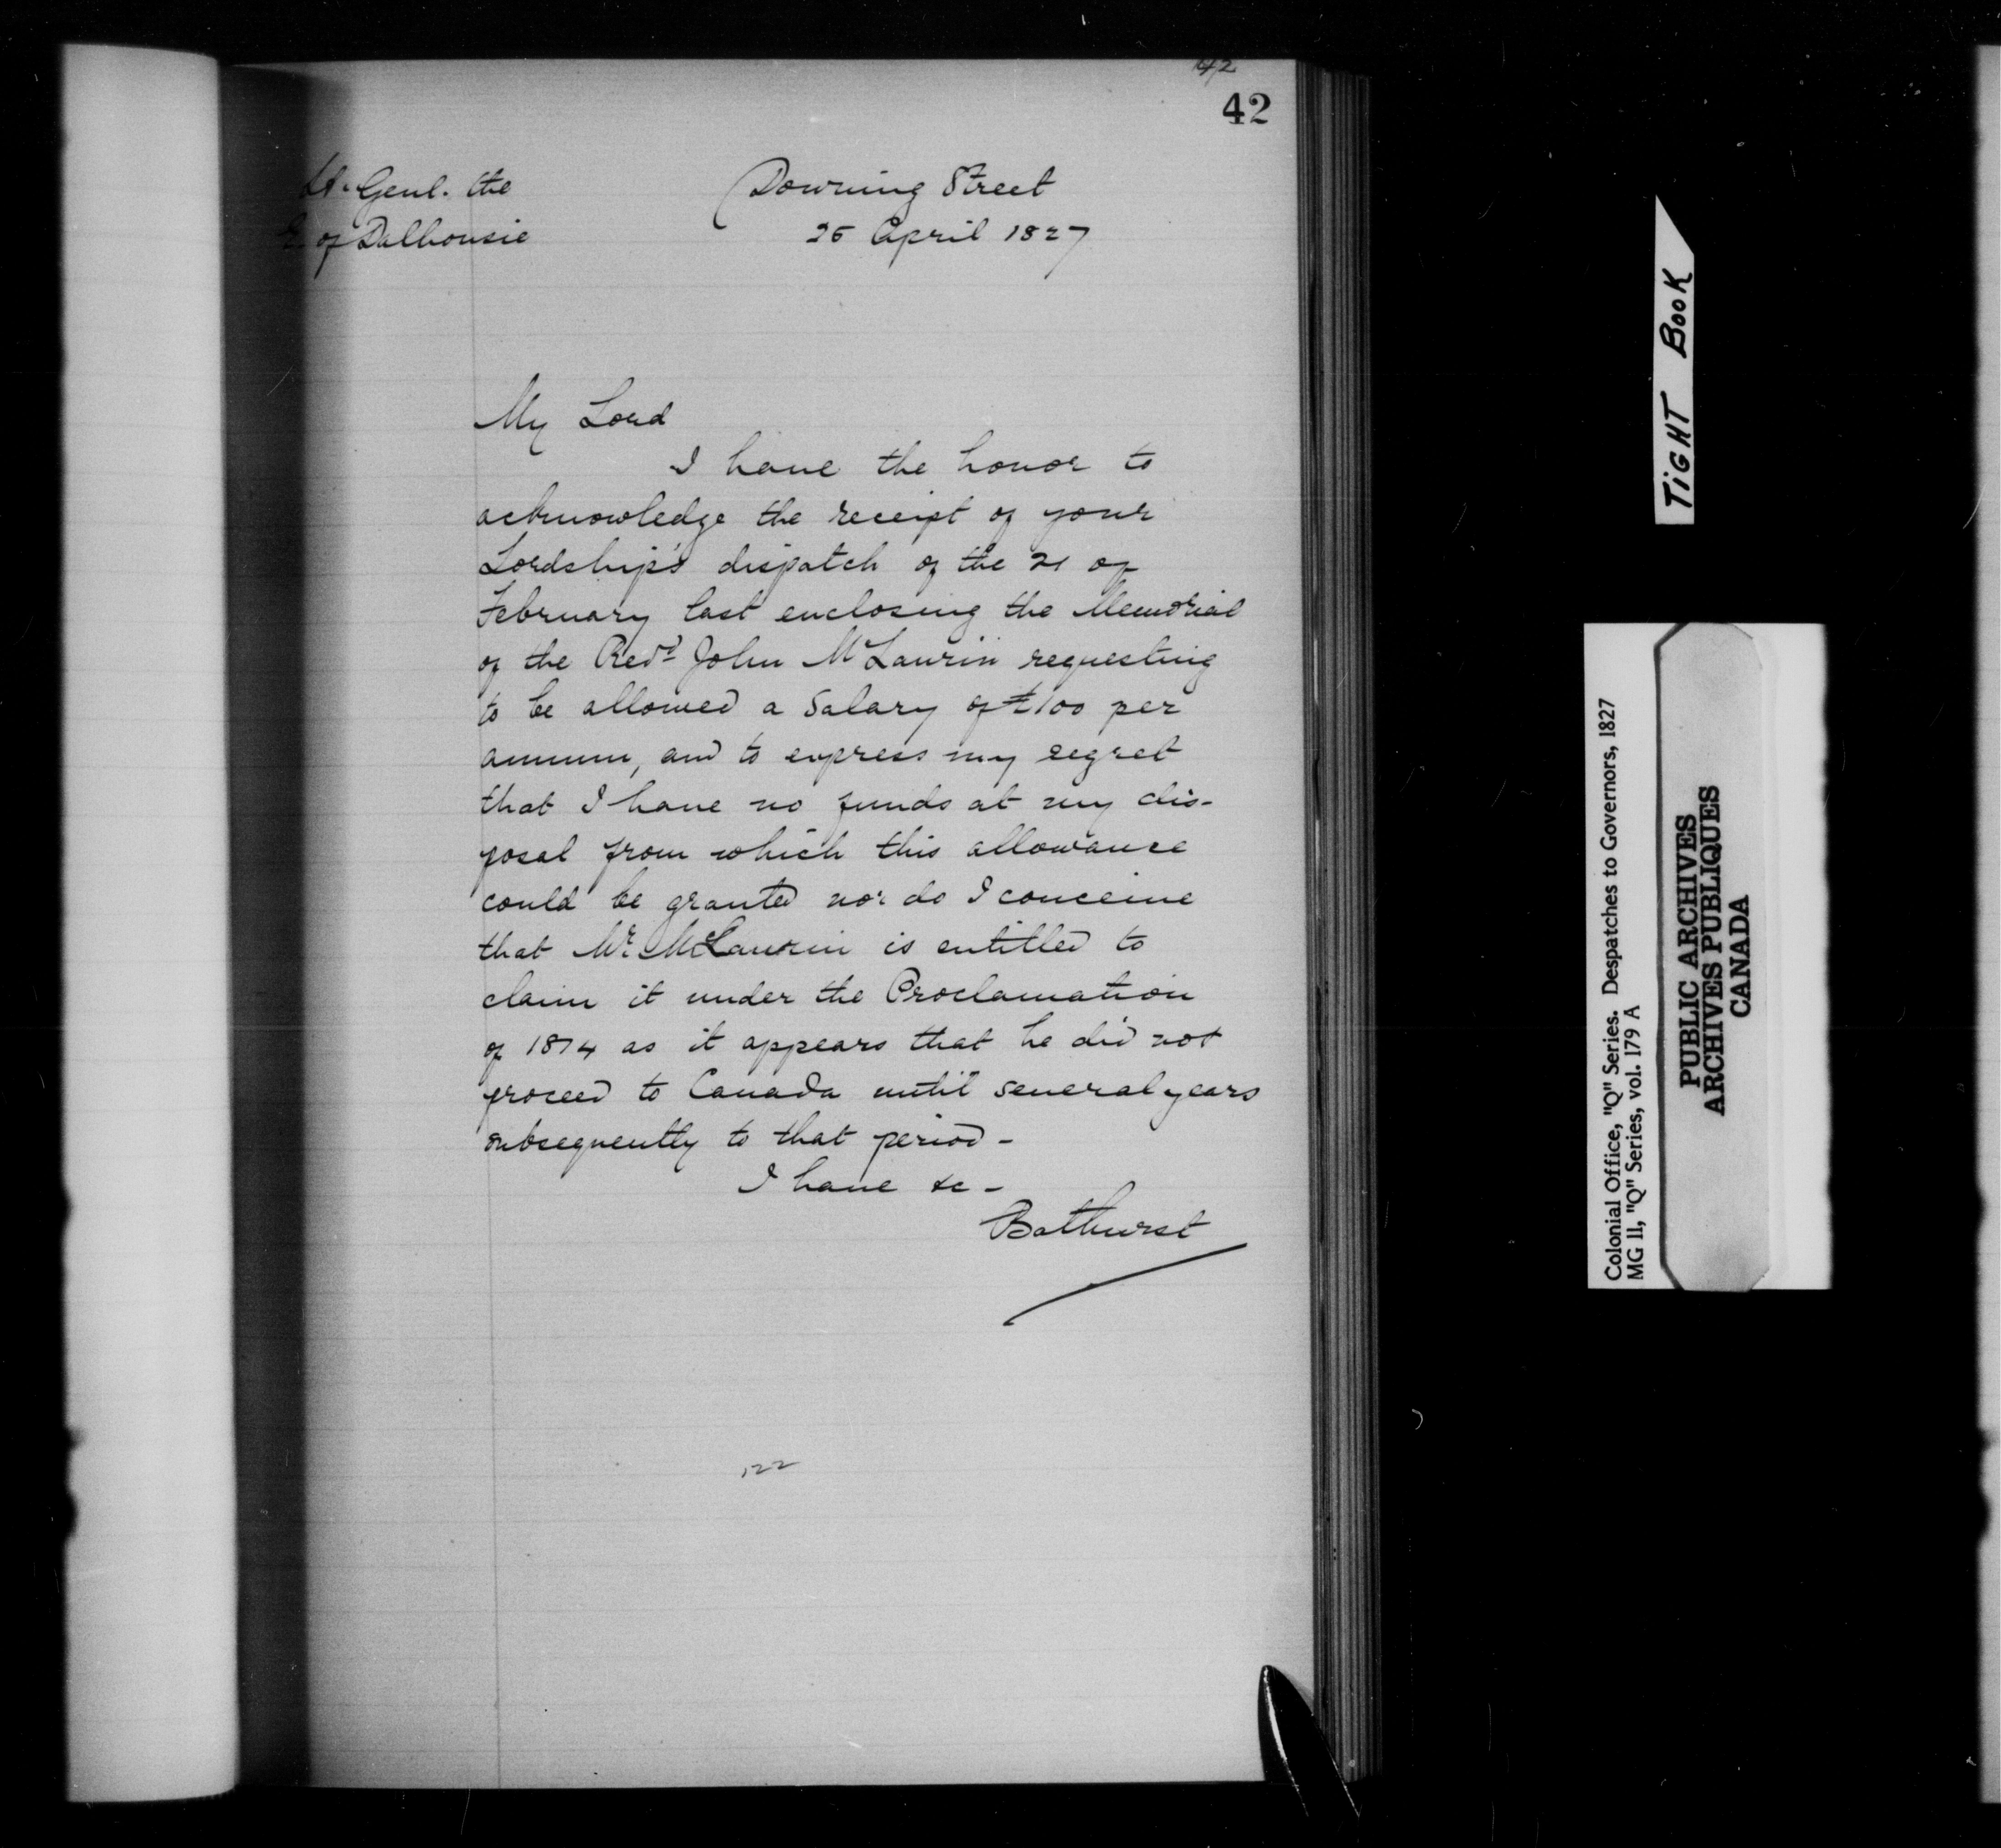 42
42
Lt. Genl. the
E. of Dalhousie
Downing Street
25 April 1827
My Lord
I have the honor to
acknowledge the receipt of your
Lordship's dispatch of the 21 of
February last enclosing the Memorial
of the Revd. John McLaurin requesting
to be allowed a Salary of £100 per
annum, and to express my regret
that I have no funds at my dis-
posal from which this allowance
could be granted nor do I conceive
that Mr. McLaurin is entitled to
claim it under the Proclamation
of 1814 as it appears that he did not
proceed to Canada until several years
subsequently to that period -
I have &c -
Bathurst
122
TIGHT BOOK
Colonial Office, "Q" Series. Despatches to Governors, 1827
MG 11, "Q" Series, vol. 179 A
PUBLIC ARCHIVES
ARCHIVES PUBLIQUES
CANADA